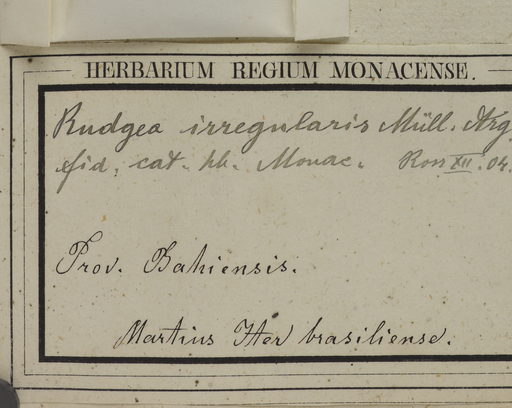 HERBARIUM REGIUM MONACENSE.
Rudgea irregularis Müll. Arg.
fid. cat. hb. Monac. Ross XII. 04.
Prov. Bahiensis.
Martius Iter brasiliense.